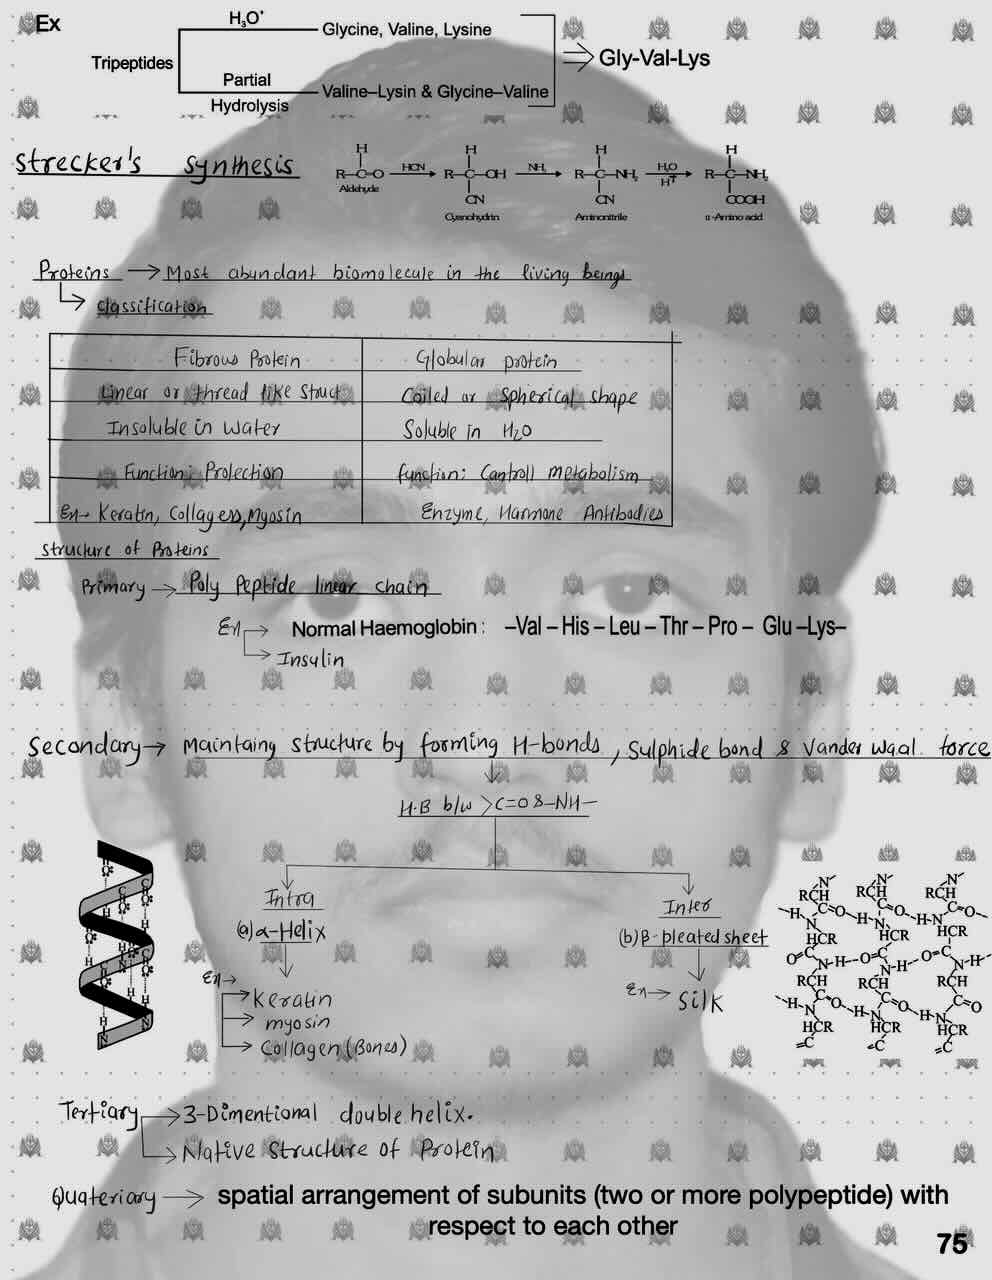 Ex
H₃O⁺
Glycine, Valine, Lysine
Tripeptides
Gly-Val-Lys
Partial
Hydrolysis
Valine–Lysin & Glycine–Valine
Strecker's synthesis
H H H H
R–C–O HCN R–C–OH NH₃ R–C–NH₂ H₂O R–C–NH₂
H⁺
CN CN COOH
Aldehyde Cyanohydrin Aminonitrile α-Amino acid
Proteins → Most abundant biomolecule in the living beings
classification
Fibrous Protein Globular protein
Linear or thread like struct Coiled or spherical shape
Insoluble in water Soluble in H₂O
Function: Protection function: Cantroll metabolism
Ex→ Keratin, Collagess, Myosin Enzyme, Harmone Antibodies
structure of Proteins
Primary → Poly Peptide linear chain
Ex → Normal Haemoglobin : –Val – His – Leu – Thr – Pro – Glu –Lys–
→ Insulin
Secondary → Maintaing structure by forming H-bonds, Sulphide bond & Vander waal force
H·B b/w >C=O & –NH–
Intra Inter
(a) α-Helix (b) β-pleated sheet
Ex→
Keratin Ex→ Silk
myosin
Collagen (Bones)
Tertiary → 3-Dimentional double helix.
→ Native structure of Protein
Quateriary → spatial arrangement of subunits (two or more polypeptide) with
respect to each other
75